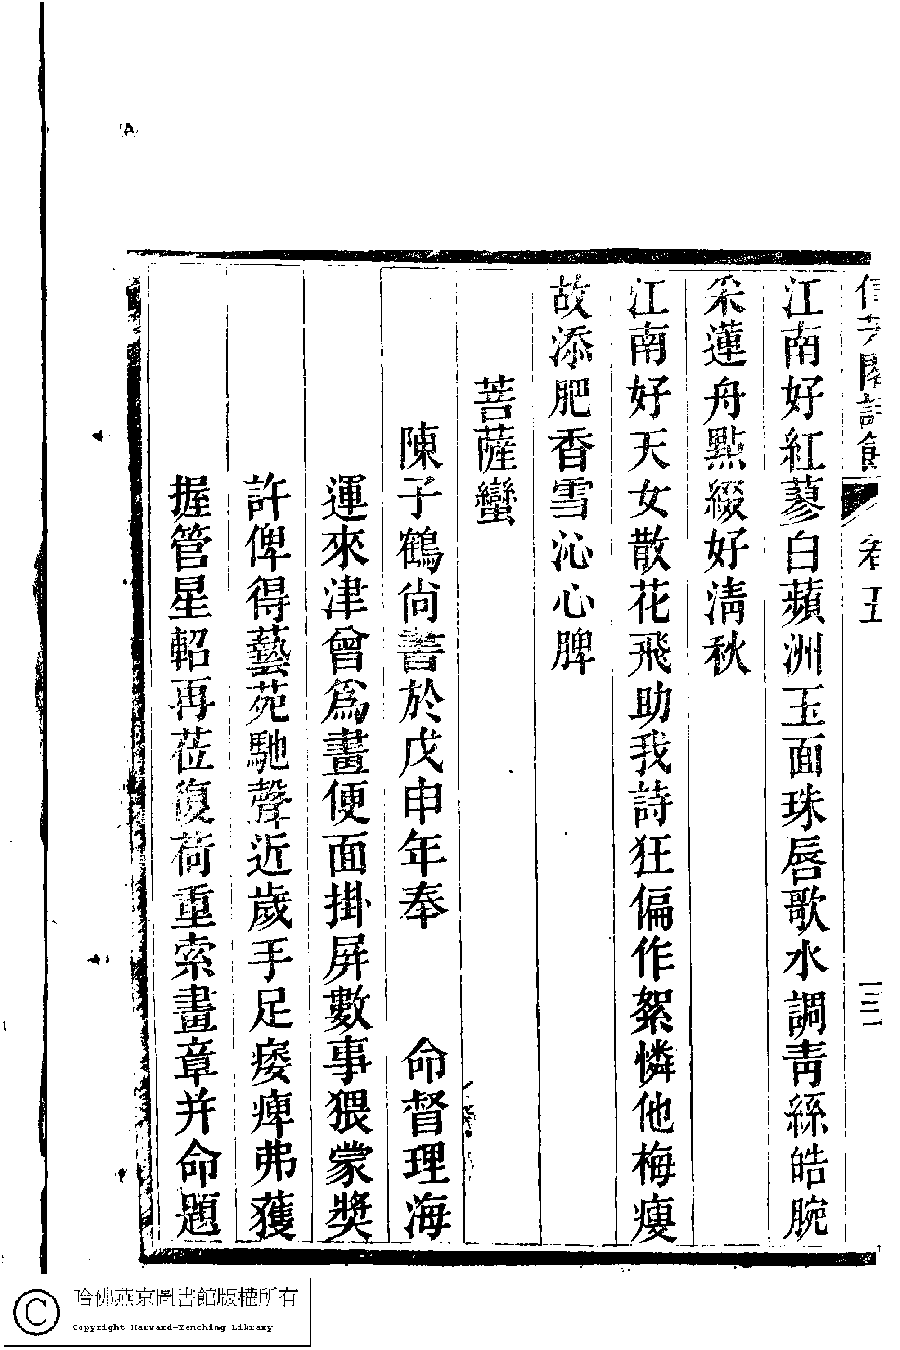 信芳閣詩餘 卷五 三
江南好紅蓼白蘋洲玉面珠唇歌水調青絲皓腕
采蓮舟點綴好淸秋
江南好天女散花飛助我詩狂偏作絮憐他梅瘦
故添肥香雪沁心脾
菩薩蠻
陳子鶴尙書於戊申年奉 命督理海
運來津曾爲畫便面掛屏數事猥蒙奬
許俾得藝苑馳聲近歲手足痿痺弗獲
握管星軺再莅復荷重索畫章幷命題
哈佛燕京圖書館版權所有
Copyright Harvard-Yenching Library